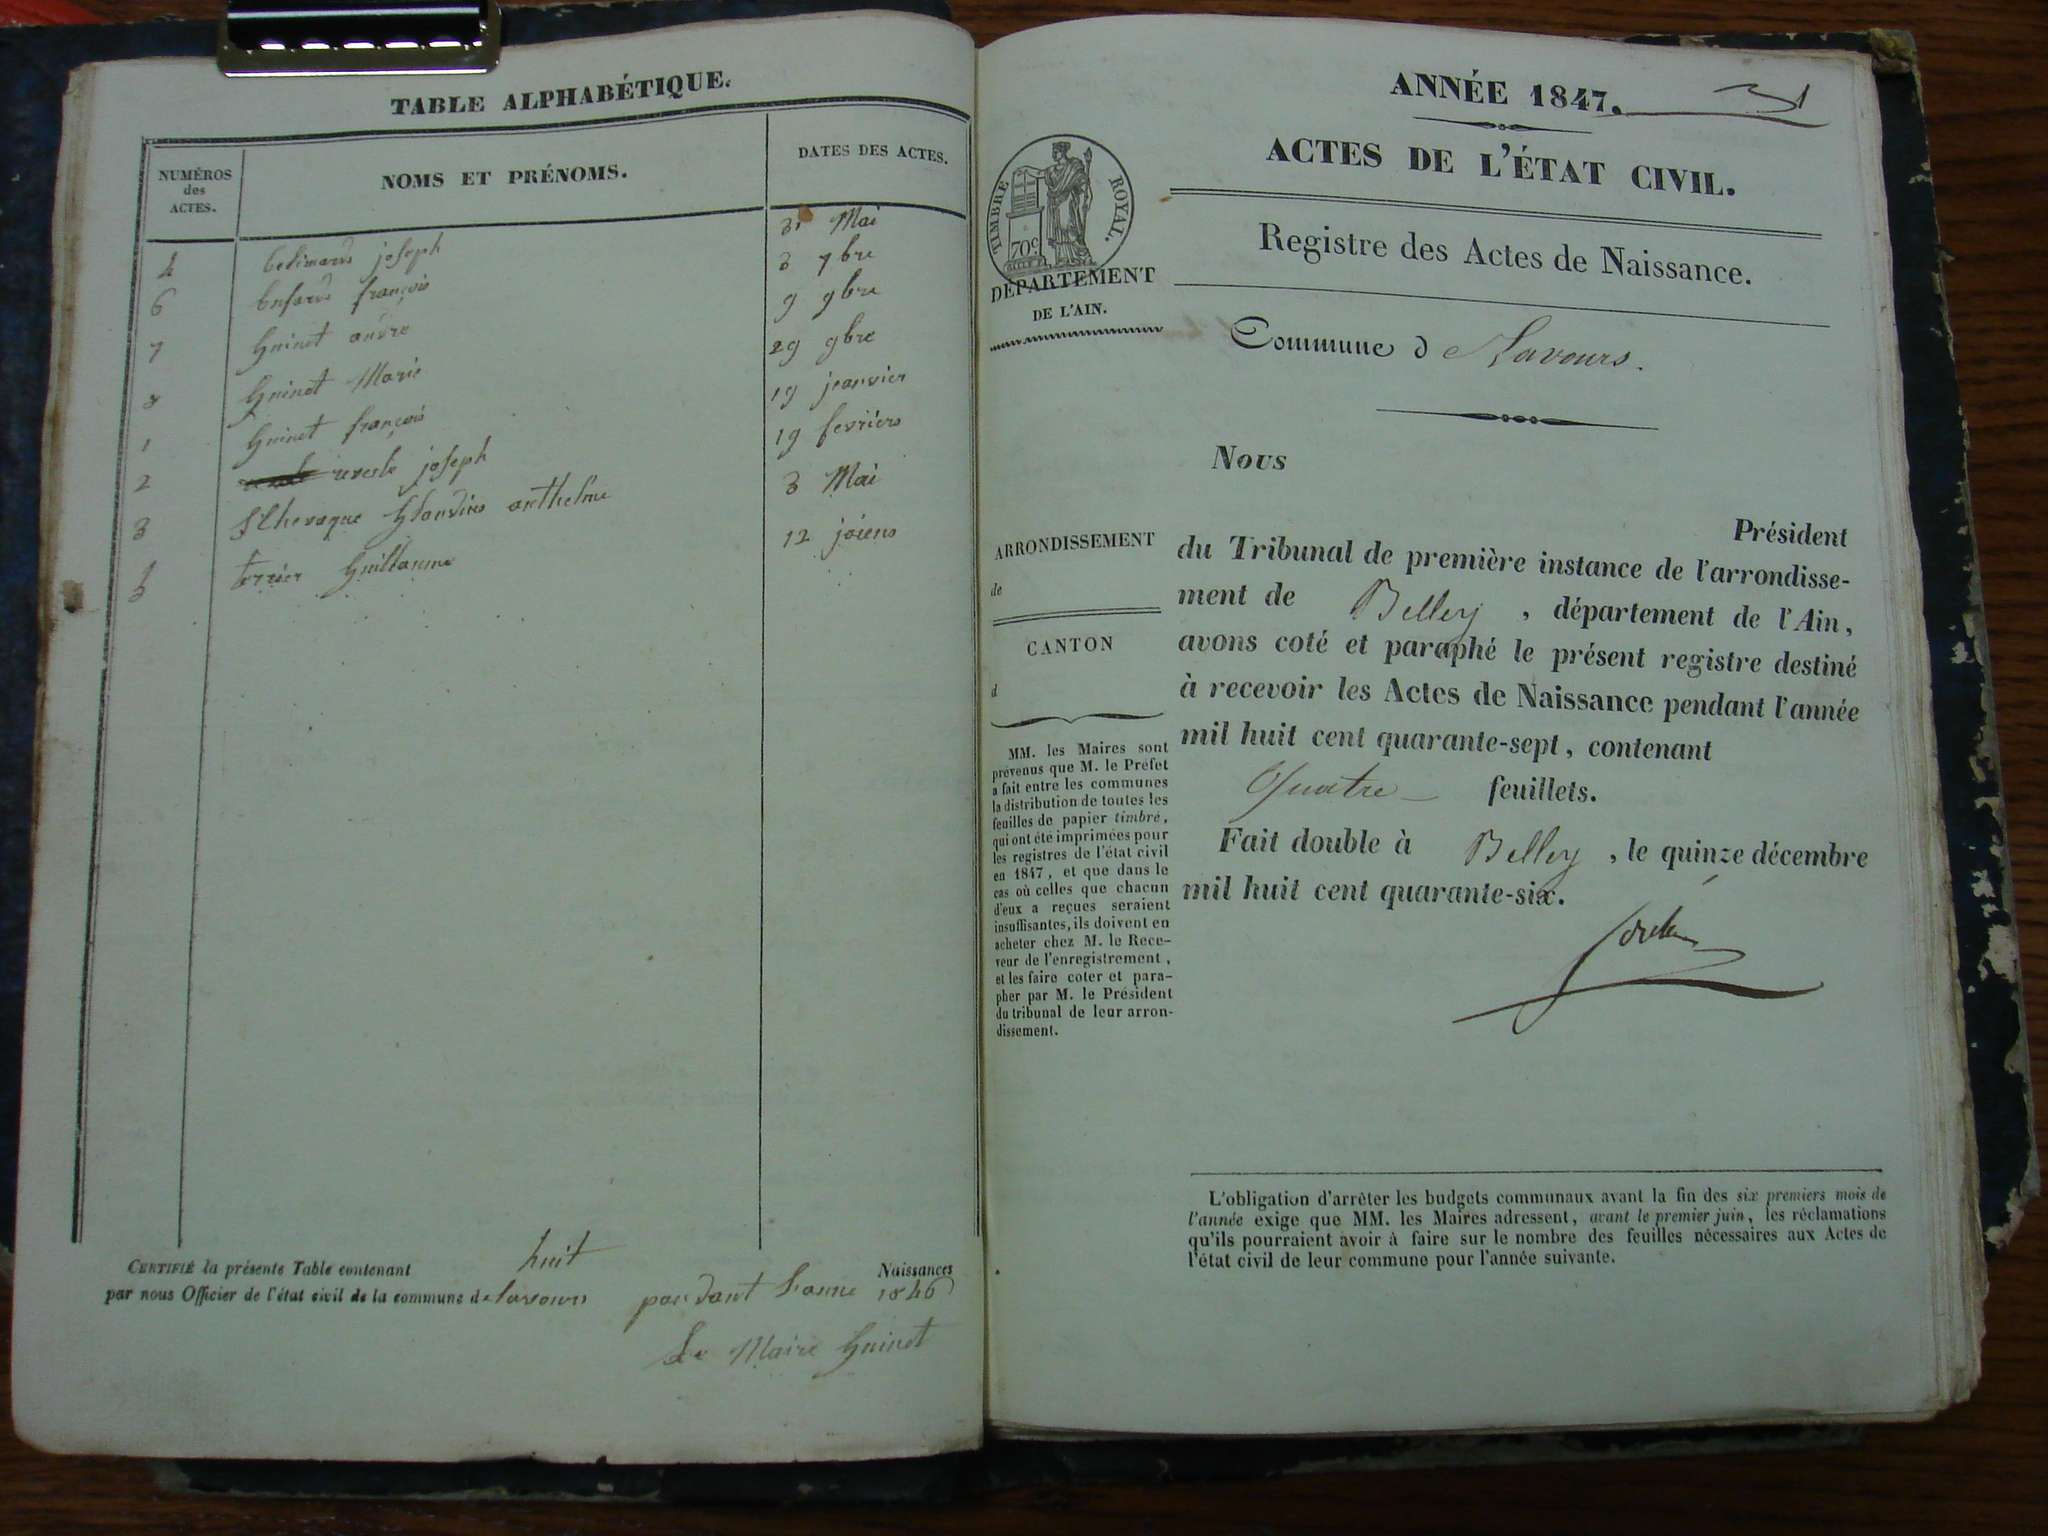 TABLE ALPHABÉTIQUE.
NUMÉROS des ACTES.
NOMS ET PRÉNOMS.
DATES DES ACTES.
4 joseph 31 Mai
6 françois 3 7bre
7 Guinet 9 9bre
8 Guinet Marie 29 9bre
1 Guinet françois 19 jeanvier
2 joseph 19 fevriers
3 anthelme 3 Mai
5 terrier Guillaume 12
CERTIFIÉ la présente Table contenant huit Naissances
par nous Officier de l'état civil de la commune de lavours pandant l'anne 1846
Le Maire Guinet
ANNÉE 1847.
ACTES DE L'ÉTAT CIVIL.
TIMBRE ROYAL.
70c
DÉPARTEMENT
DE L'AIN.
Registre des Actes de Naissance.
Commune de Lavours.
Nous
Président
du Tribunal de première instance de l'arrondisse-
ment de Belley, département de l'Ain,
avons coté et paraphé le présent registre destiné
à recevoir les Actes de Naissance pendant l'année
mil huit cent quarante-sept, contenant
Quatre feuillets.
Fait double à Belley, le quinze décembre
mil huit cent quarante-six.
ARRONDISSEMENT
de
CANTON
d
MM. les Maires sont
prévenus que M. le Préfet
a fait entre les communes
la distribution de toutes les
feuilles de papier timbré,
qui ont été imprimées pour
les registres de l'état civil
en 1847, et que dans le
cas où celles que chacun
d'eux a reçues seraient
insuffisantes, ils doivent en
acheter chez M. le Rece-
veur de l'enregistrement,
et les faire coter et para-
pher par M. le Président
du tribunal de leur arron-
dissement.
L'obligation d'arrêter les budgets communaux avant la fin des six premiers mois de
l'année exige que MM. les Maires adressent, avant le premier juin, les réclamations
qu'ils pourraient avoir à faire sur le nombre des feuilles nécessaires aux Actes de
l'état civil de leur commune pour l'année suivante.